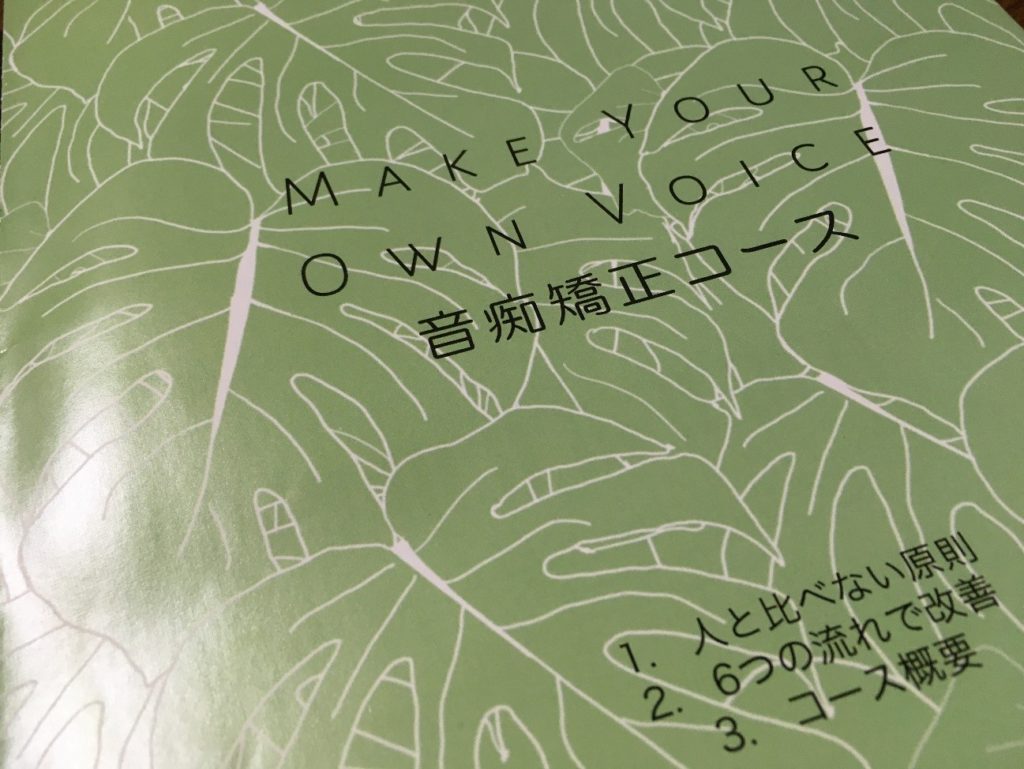 MAKE YOUR
OWN VOICE
音痴矯正コース
1. 人と比べない原則
2. 6つの流れで改善
3. コース概要